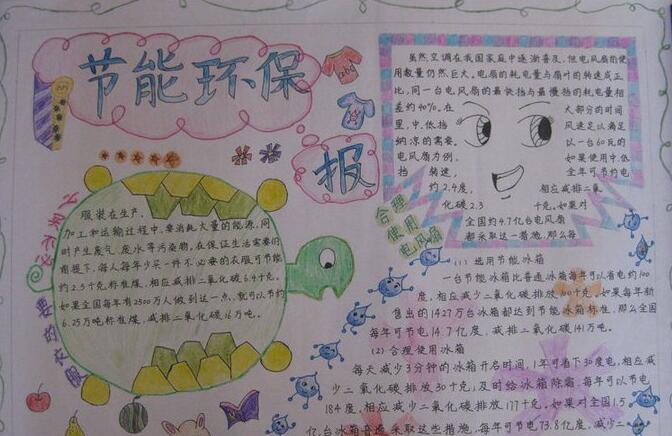 节能环保
报
abc
少买不必要的衣服
服装在生产、
加工和运输过程中,要消耗大量的能源,同
时产生废气、废水等污染物。在保证生活需要的
前提下,每人每年少买一件不必要的衣服可节能
约2.5千克标准煤,相应减排二氧化碳6.4千克。
如果全国每年有2500万人做到这一点,就可以节约
6.25万吨标准煤,减排二氧化碳16万吨。
合理
使用
电风扇
虽然空调在我国家庭中逐渐普及,但电风扇的使
用数量仍然巨大。电扇的耗电量与扇叶的转速成正
比,同一台电风扇的最快挡与最慢挡的耗电量相
差约40%。在 大部分的时间
里,中、低挡 风速足以满足
纳凉的需要。 以一台60瓦的
电风扇为例, 如果使用中、低
挡 转速, 全年可节约电
约2.4度, 相应减排二氧
化碳2.3 千克。如果对
全国约4.7亿台电风扇
都采取这一措施,那么每
(1)选用节能冰箱
一台节能冰箱比普通冰箱每年可以省电约100
度,相应减少二氧化碳排放100千克。如果每年新
售出的1427万台冰箱都达到节能冰箱标准,那么全国
每年可节电14.7亿度,减排二氧化碳141万吨。
(2)合理使用冰箱
每天减少3分钟的冰箱开启时间,1年可省下30度电,相应减
少二氧化碳排放30千克;及时给冰箱除霜,每年可以节电
184度,相应减少二氧化碳排放177千克。如果对全国1.5
亿台冰箱普遍采取这些措施,每年可节电73.8亿度,减少二